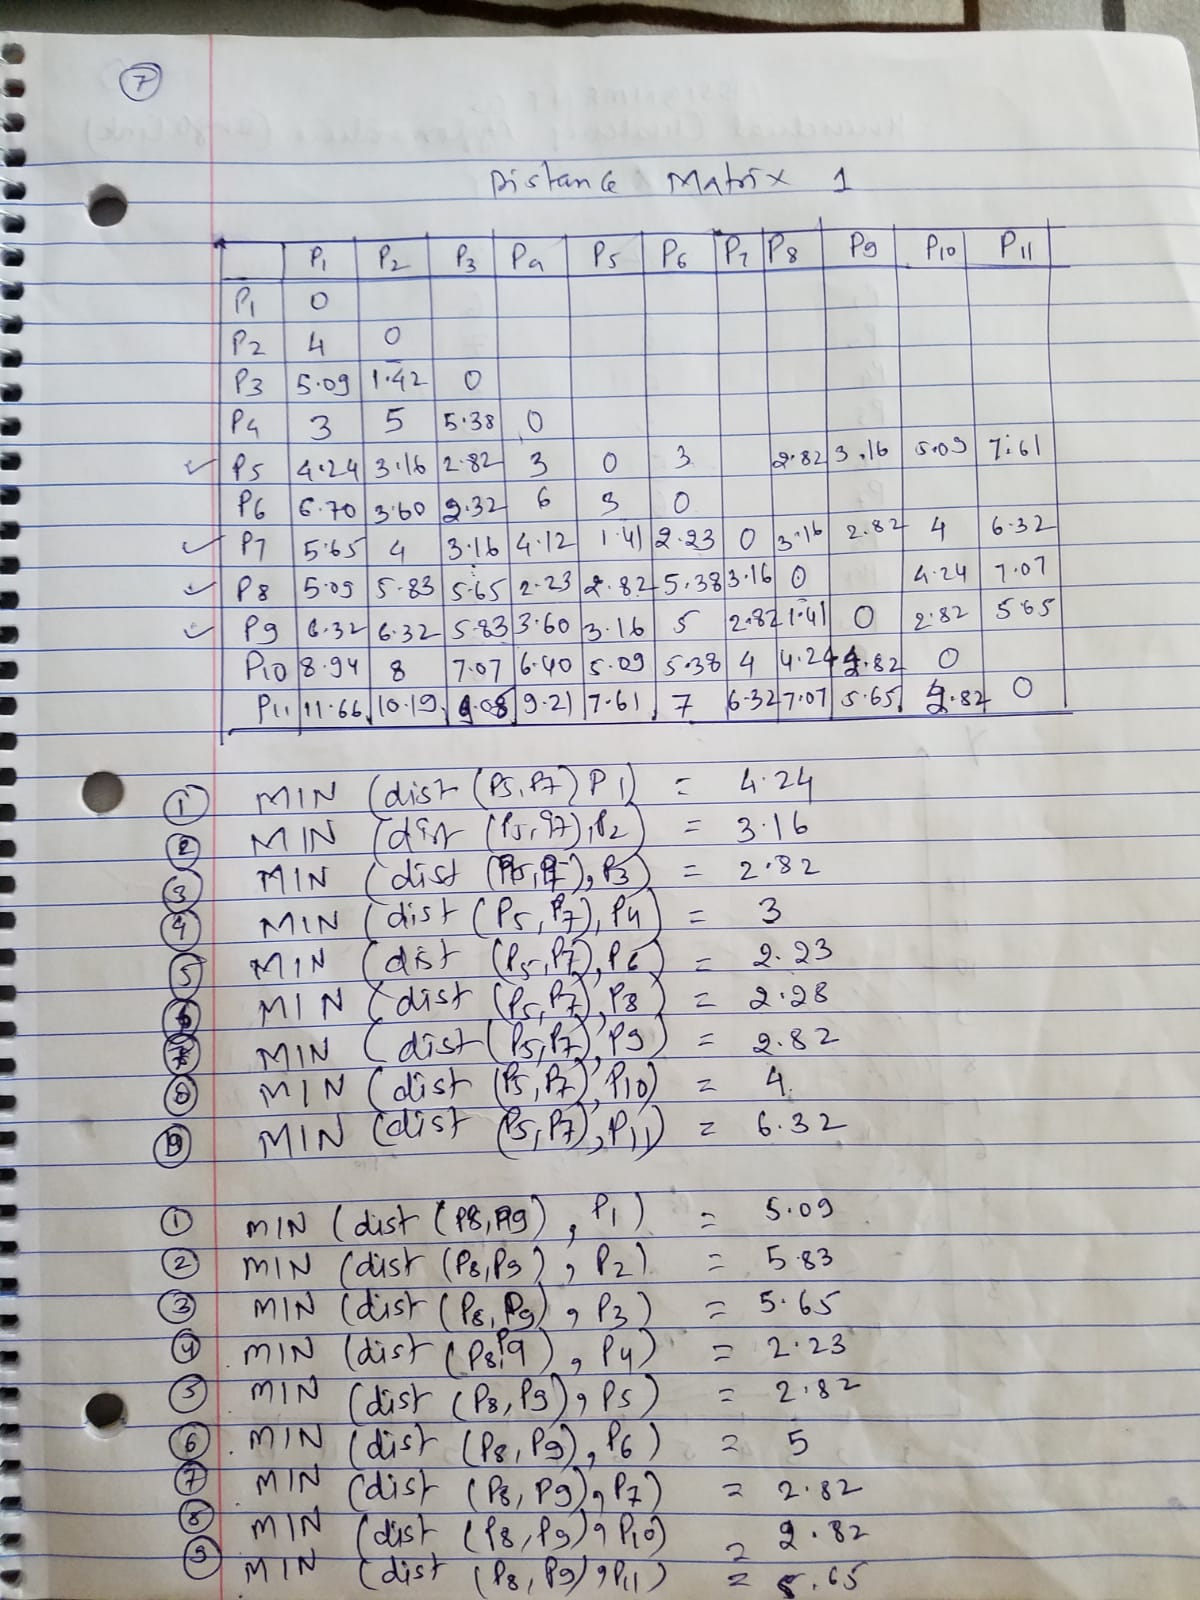 7
Distance Matrix 1
P1 P2 P3 P4 P5 P6 P7 P8 P9 P10 P11
P1 0
P2 4 0
P3 5.09 1.42 0
P4 3 5 5.38 0
P5 4.24 3.16 2.82 3 0 3 2.82 3.16 5.09 7.61
P6 6.70 3.60 2.32 6 3 0
P7 5.65 4 3.16 4.12 1.41 2.23 0 3.16 2.82 4 6.32
P8 5.09 5.83 5.65 2.23 2.82 5.38 3.16 0 4.24 7.07
P9 6.32 6.32 5.83 3.60 3.16 5 2.82 1.41 0 2.82 5.65
P10 8.94 8 7.07 6.40 5.09 5.38 4 4.24 2.82 0
P11 11.66 10.19 9.08 9.21 7.61 7 6.32 7.07 5.65 2.82 0
1 MIN (dist (P5, P7) P1) = 4.24
2 MIN (dist (P5, P7), P2) = 3.16
3 MIN (dist (P5, P7), P3) = 2.82
4 MIN (dist (P5, P7), P4) = 3
5 MIN (dist (P5, P7), P6) = 2.23
6 MIN (dist (P5, P7), P8) = 2.28
7 MIN (dist (P5, P7), P9) = 2.82
8 MIN (dist (P5, P7), P10) = 4
9 MIN (dist (P5, P7), P11) = 6.32
1 MIN (dist (P8, P9), P1) = 5.09
2 MIN (dist (P8, P9), P2) = 5.83
3 MIN (dist (P8, P9), P3) = 5.65
4 MIN (dist (P8, P9), P4) = 2.23
5 MIN (dist (P8, P9), P5) = 2.82
6 MIN (dist (P8, P9), P6) = 5
7 MIN (dist (P8, P9), P7) = 2.82
8 MIN (dist (P8, P9), P10) = 2.82
9 MIN (dist (P8, P9), P11) = 5.65